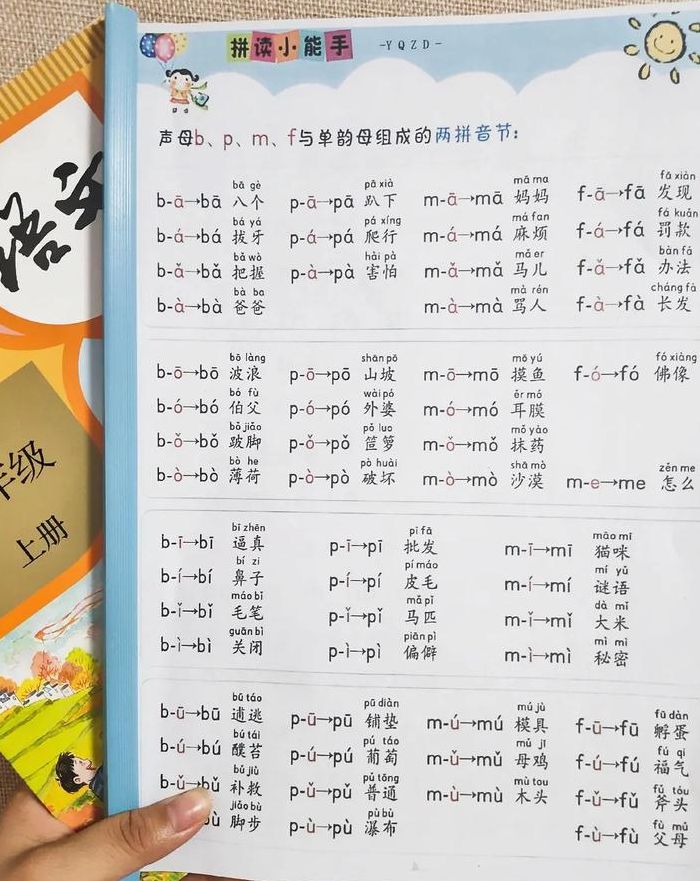 拼读小能手 -YQZD-
声母b、p、m、f与单韵母组成的两拼音节:
bā gè pā xià mā ma fā xiàn
b-ā→bā 八个 p-ā→pā 趴下 m-ā→mā 妈妈 f-ā→fā 发现
bá yá pá xíng má fan fá kuǎn
b-á→bá 拔牙 p-á→pá 爬行 m-á→má 麻烦 f-á→fá 罚款
bǎ wò hài pà mǎ er bàn fǎ
b-ǎ→bǎ 把握 p-à→pà 害怕 m-ǎ→mǎ 马儿 f-ǎ→fǎ 办法
bà ba mà rén cháng fà
b-à→bà 爸爸 m-à→mà 骂人 f-à→fà 长发
bō làng shān pō mō yú fó xiàng
b-ō→bō 波浪 p-ō→pō 山坡 m-ō→mō 摸鱼 f-ó→fó 佛像
bó fù wài pó ěr mó
b-ó→bó 伯父 p-ó→pó 外婆 m-ó→mó 耳膜
bǒ jiǎo pǒ luo mǒ yào
b-ǒ→bǒ 跛脚 p-ǒ→pǒ 笸箩 m-ǒ→mǒ 抹药
bò he pò huài shā mò zěn me
b-ò→bò 薄荷 p-ò→pò 破坏 m-ò→mò 沙漠 m-e→me 怎么
bī zhēn pī fā māo mī
b-ī→bī 逼真 p-ī→pī 批发 m-ī→mī 猫咪
bí zi pí máo mí yǔ
b-í→bí 鼻子 p-í→pí 皮毛 m-í→mí 谜语
máo bǐ mǎ pǐ dà mǐ
b-ǐ→bǐ 毛笔 p-ǐ→pǐ 马匹 m-ǐ→mǐ 大米
guān bì piān pì mì mì
b-ì→bì 关闭 p-ì→pì 偏僻 m-ì→mì 秘密
bū táo pū diàn mú jù fū dàn
b-ū→bū 逋逃 p-ū→pū 铺垫 m-ú→mú 模具 f-ū→fū 孵蛋
bú tái pú táo mǔ jī fú qi
b-ú→bú 醭苔 p-ú→pú 葡萄 m-ǔ→mǔ 母鸡 f-ú→fú 福气
bǔ jiù pǔ tōng mù tou fǔ tóu
b-ǔ→bǔ 补救 p-ǔ→pǔ 普通 m-ù→mù 木头 f-ǔ→fǔ 斧头
jiǎo bù pù bù fù mǔ
bù 脚步 p-ù→pù 瀑布 f-ù→fù 父母
语文
年级
上册